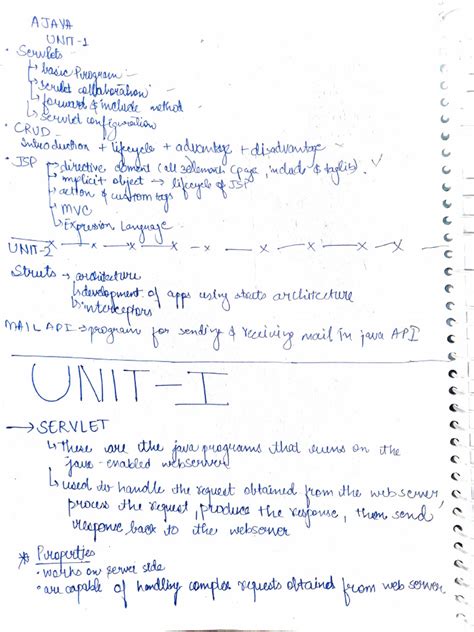 AJAVA
UNIT-1
• Servlets -
↳ basic Program -
↳ servlet collaboration -
↳ forward & include method
↳ servlet configuration
• CRUD -
Introduction + lifecycle + advantage + disadvantage -
• JSP
directive element (all 3 element (page, include & taglib) ✓
implicit object → lifecycle of JSP
action & custom tags
MVC
↳ Expression Language
UNIT-2
Struts → architecture
↳ development of apps using struts architecture
↳ interceptors
MAIL API → program for sending & receiving mail in java API
UNIT-I
→ SERVLET
↳ these are the java programs that runs on the
java-enabled webserver
↳ used to handle the request obtained from the webserver,
process the request, produce the response, then send
response back to the webserver
* Properties
• works on server side
• are capable of handling complex requests obtained from web server